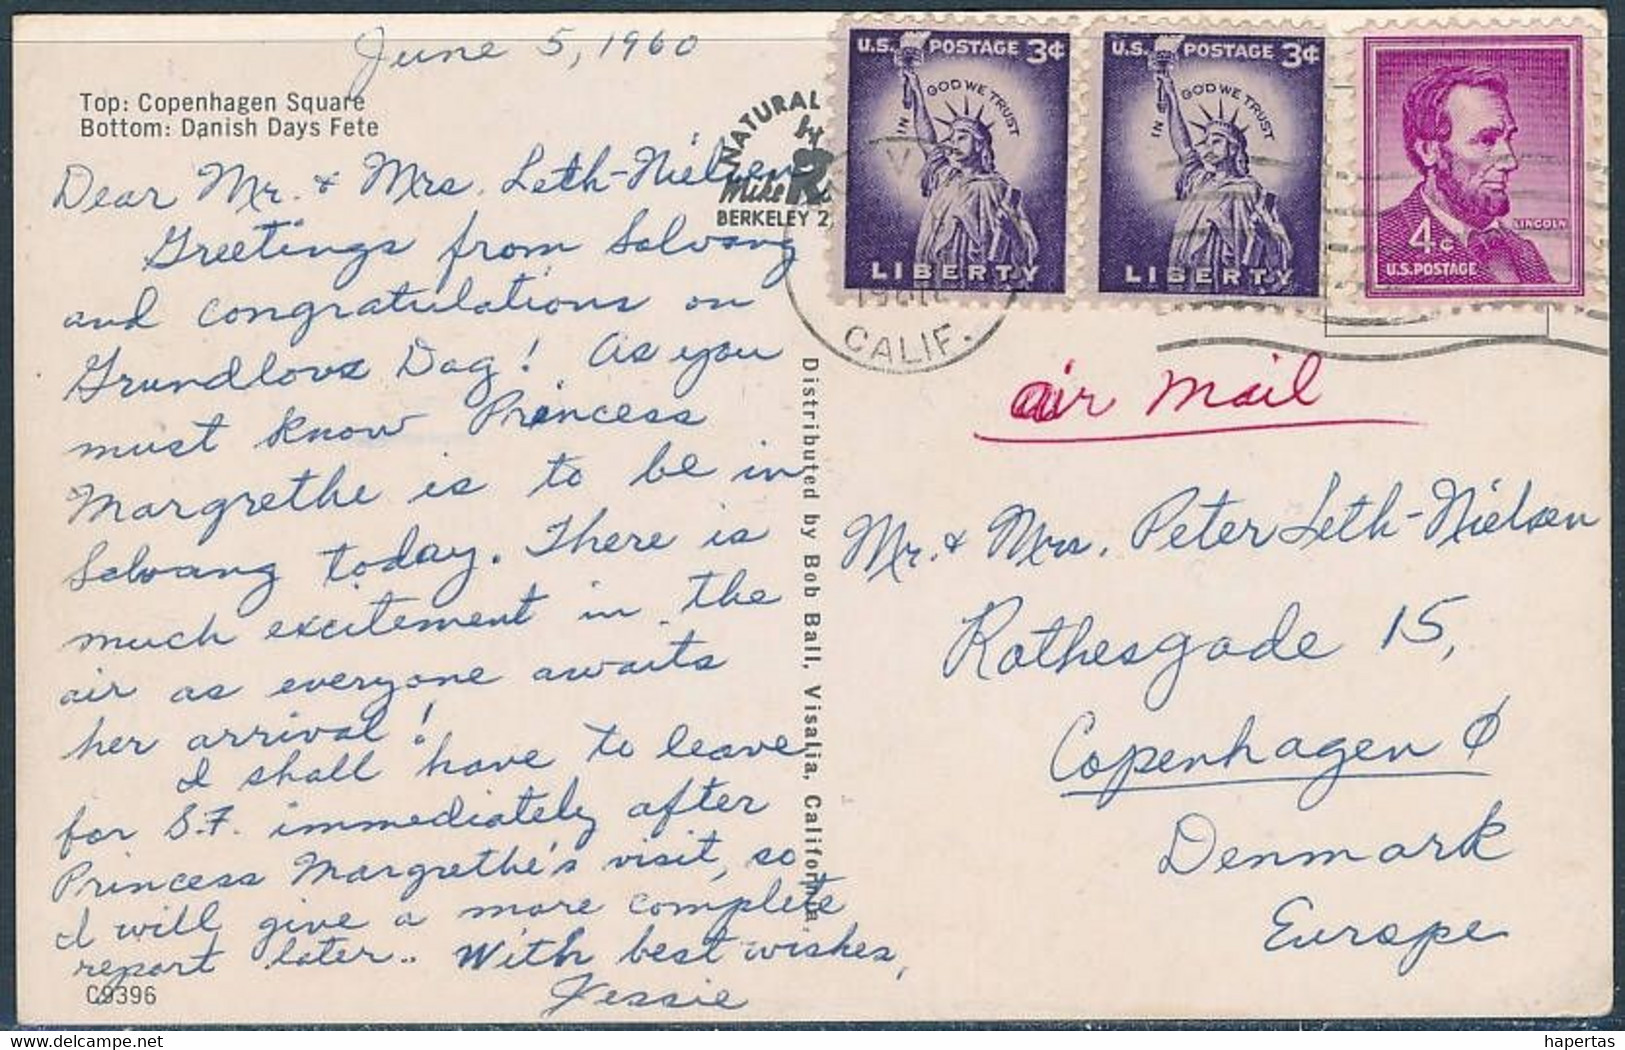 June 5, 1960
Top: Copenhagen Square
Bottom: Danish Days Fete
Dear Mr. & Mrs. Leth-Nielsen
Greetings from Solvang
and congratulations on
Grundlovs Dag! As you
must know Princess
Margrethe is to be in
Solvang today. There is
much excitement in the
air as everyone awaits
her arrival!
I shall have to leave
for S.F. immediately after
Princess Margrethe's visit, so
I will give a more complete
report later.. With best wishes,
Jessie
C9396
NATURAL
by
Mike
BERKELEY 2,
Distributed by Bob Ball, Visalia, California.
U.S. POSTAGE 3¢
IN GOD WE TRUST
LIBERTY
U.S. POSTAGE 3¢
IN GOD WE TRUST
LIBERTY
LINCOLN
4c
U.S. POSTAGE
CALIF.
air mail
Mr. & Mrs. Peter Leth-Nielsen
Rothesgade 15,
Copenhagen Ø
Denmark
Europe
hapertas